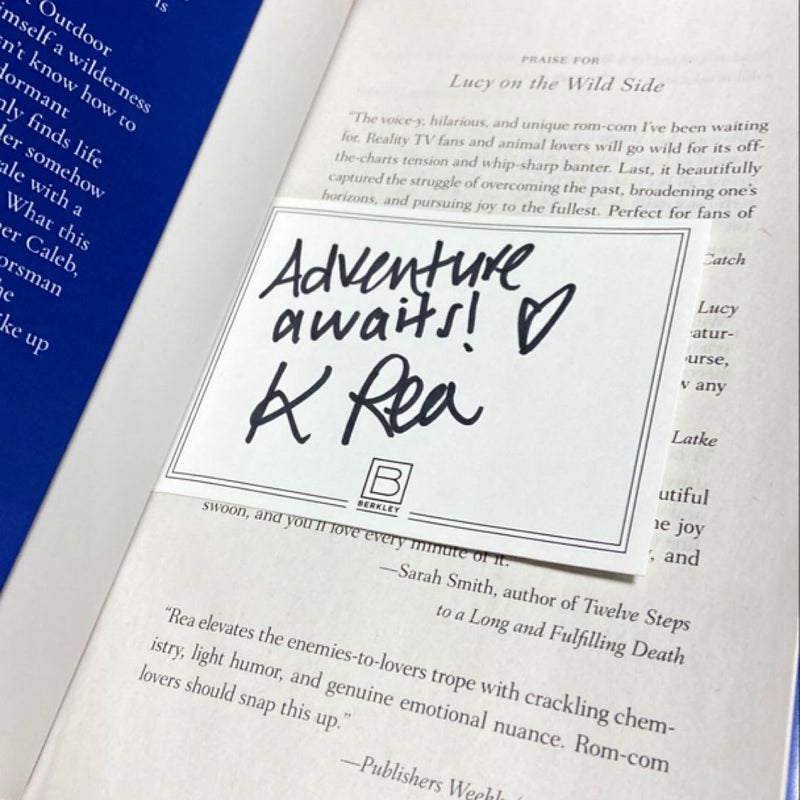 is
Outdoor
imself a wilderness
n't know how to
dormant
nly finds life
der somehow
ale with a
What this
er Caleb,
orsman
he
ike up
PRAISE FOR
Lucy on the Wild Side
"The voice-y, hilarious, and unique rom-com I've been waiting
for. Reality TV fans and animal lovers will go wild for its off-
the-charts tension and whip-sharp banter. Last, it beautifully
captured the struggle of overcoming the past, broadening one's
horizons, and pursuing joy to the fullest. Perfect for fans of
Catch
Lucy
atur-
urse,
any
Latke
utiful
he joy
, and
Adventure
awaits! ♡
K Rea
B
BERKLEY
swoon, and you'll love every minute of it."
—Sarah Smith, author of Twelve Steps
to a Long and Fulfilling Death
"Rea elevates the enemies-to-lovers trope with crackling chem-
istry, light humor, and genuine emotional nuance. Rom-com
lovers should snap this up."
—Publishers Weekly